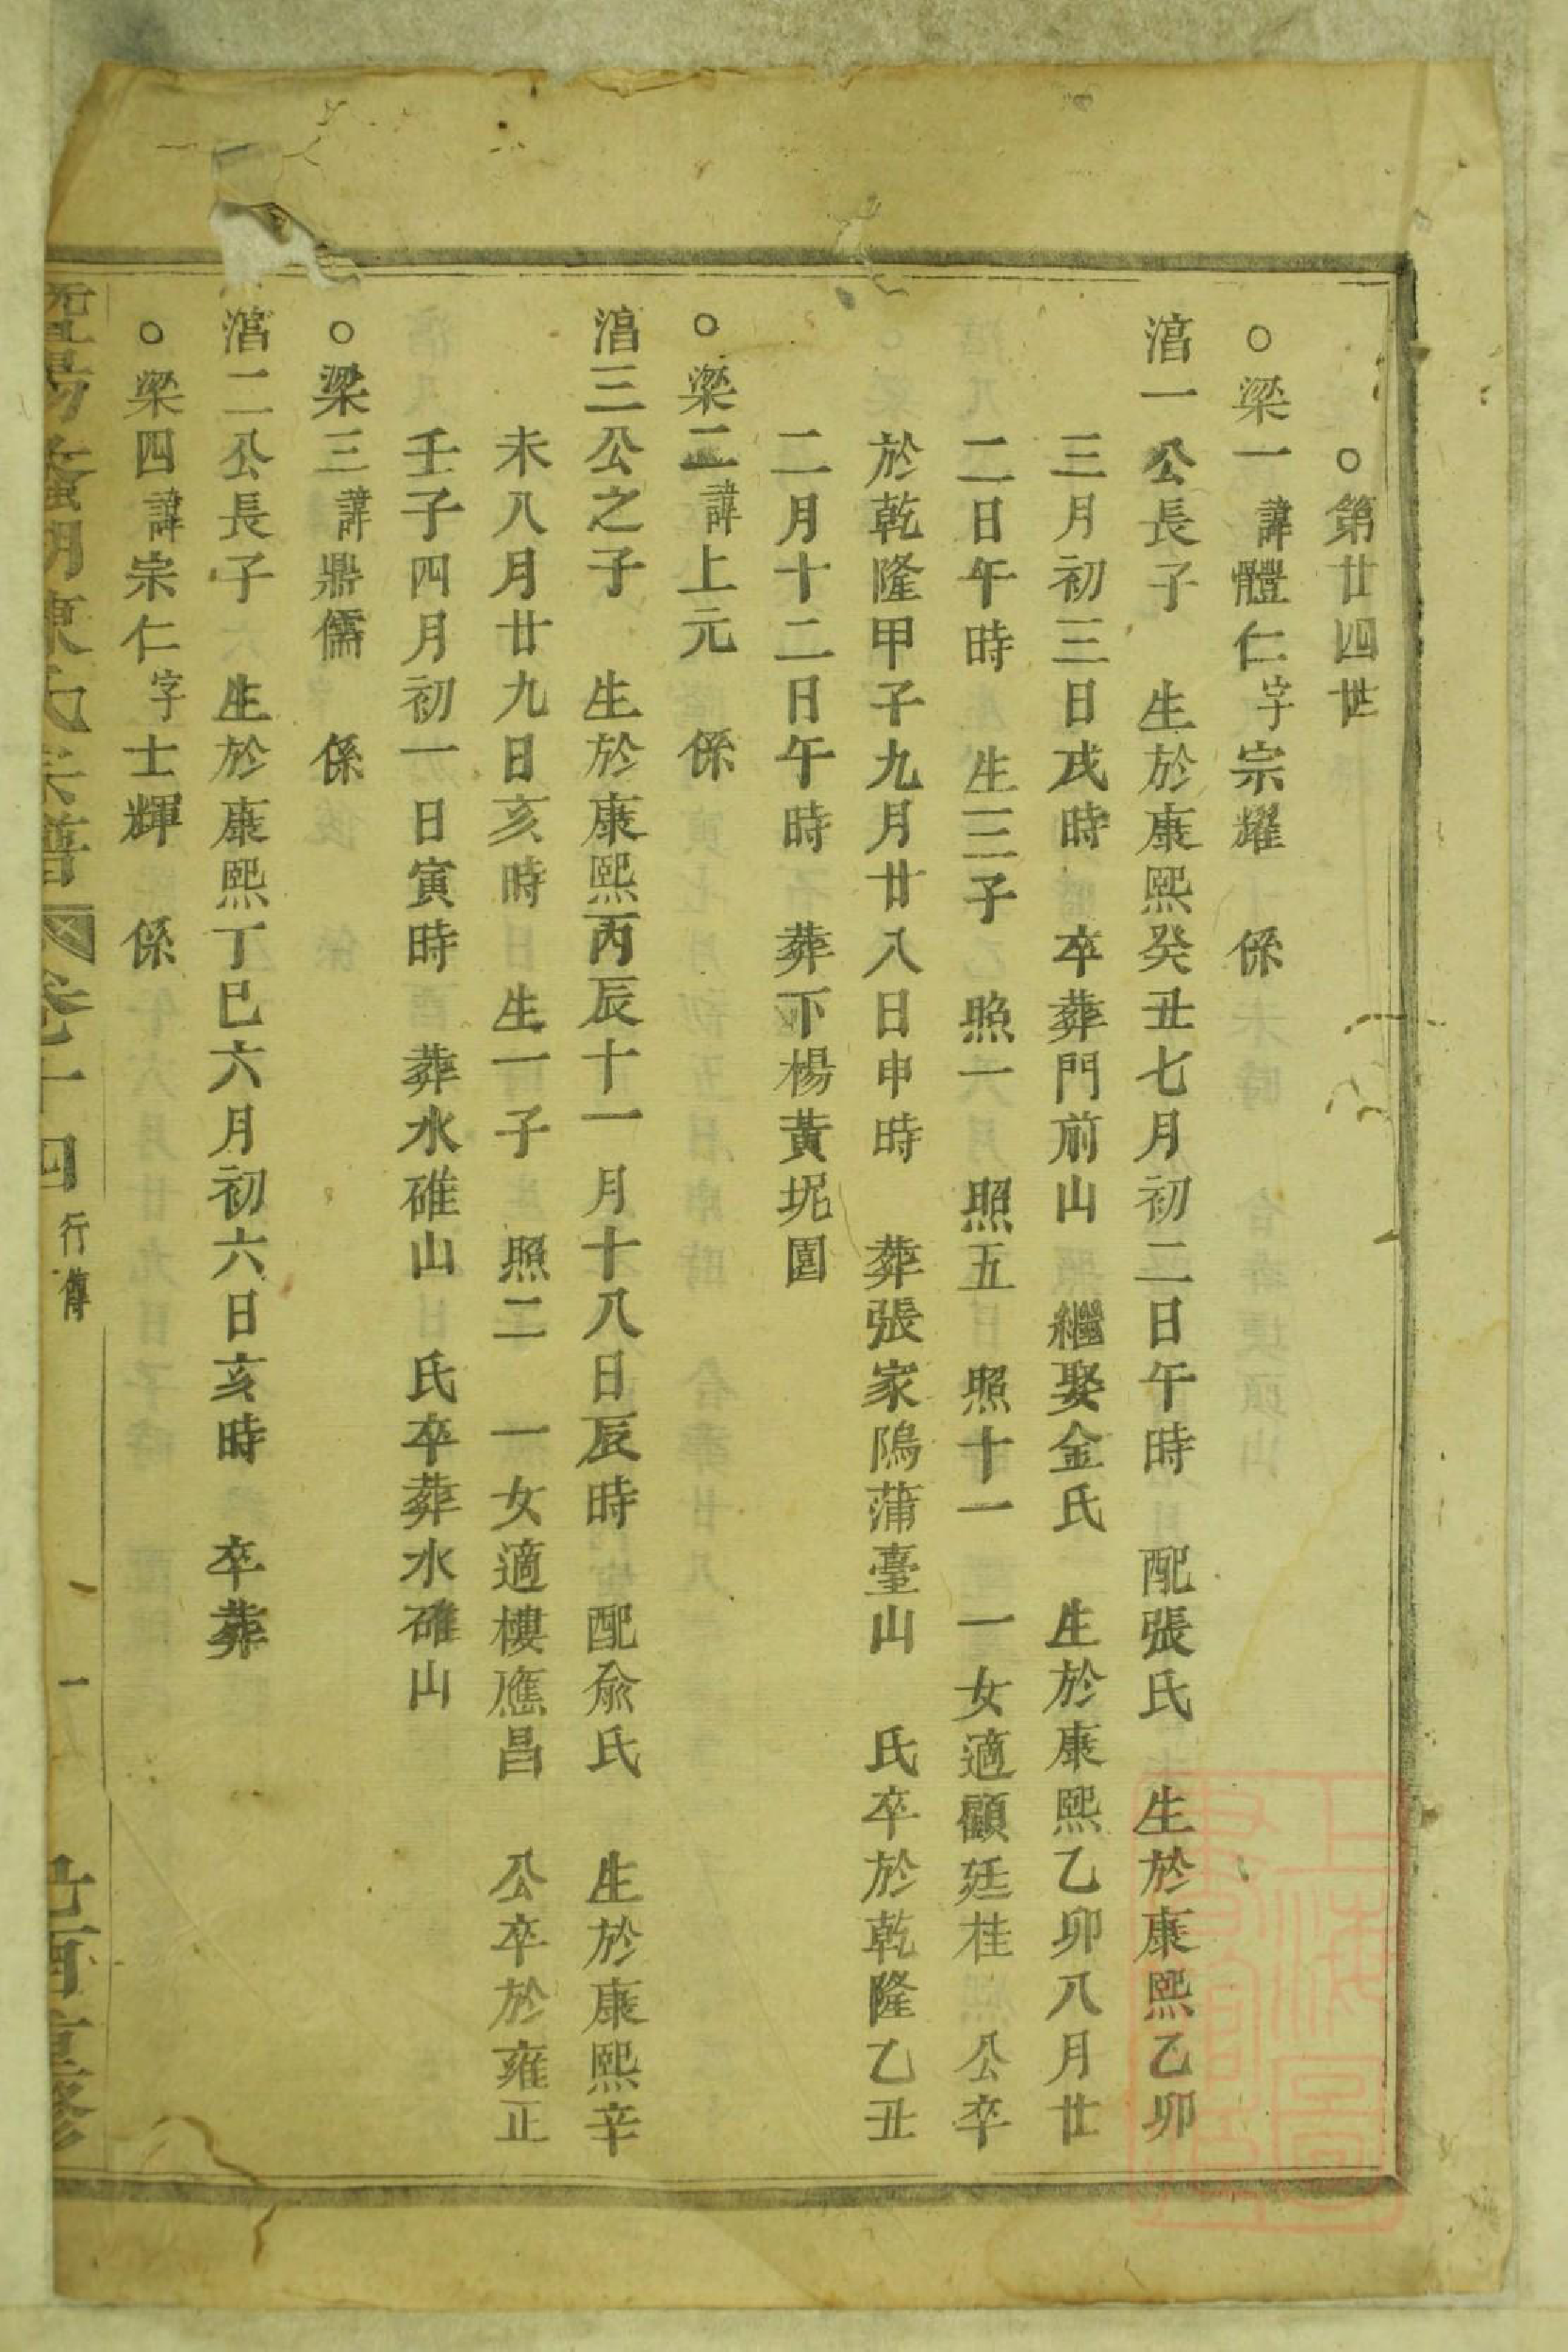 ○第廿四世
○梁一諱體仁字宗耀　係
濸一公長子　生於康熙癸丑七月初二日午時　配張氏　生於康熙乙卯
三月初三日戌時　卒葬門前山　繼娶金氏　生於康熙乙卯八月廿
二日午時　生三子　照一　照五　照十一　一女適顧廷桂　公卒
於乾隆甲子九月廿八日申時　葬張家隖蒲臺山　氏卒於乾隆乙丑
二月十二日午時　葬下楊黃坭園
○梁二諱上元　係
濸三公之子　生於康熙丙辰十一月十八日辰時　配俞氏　生於康熙辛
未八月廿九日亥時　生一子　照二　一女適樓應昌　公卒於雍正
壬子四月初一日寅時　葬水碓山　氏卒葬水碓山
○梁三諱鼎儒　係
濸二公長子　生於康熙丁巳六月初六日亥時　卒葬
○梁四諱宗仁字士輝　係
暨陽　湖陳氏宗譜　卷十四　行傳　一
上海圖書館藏